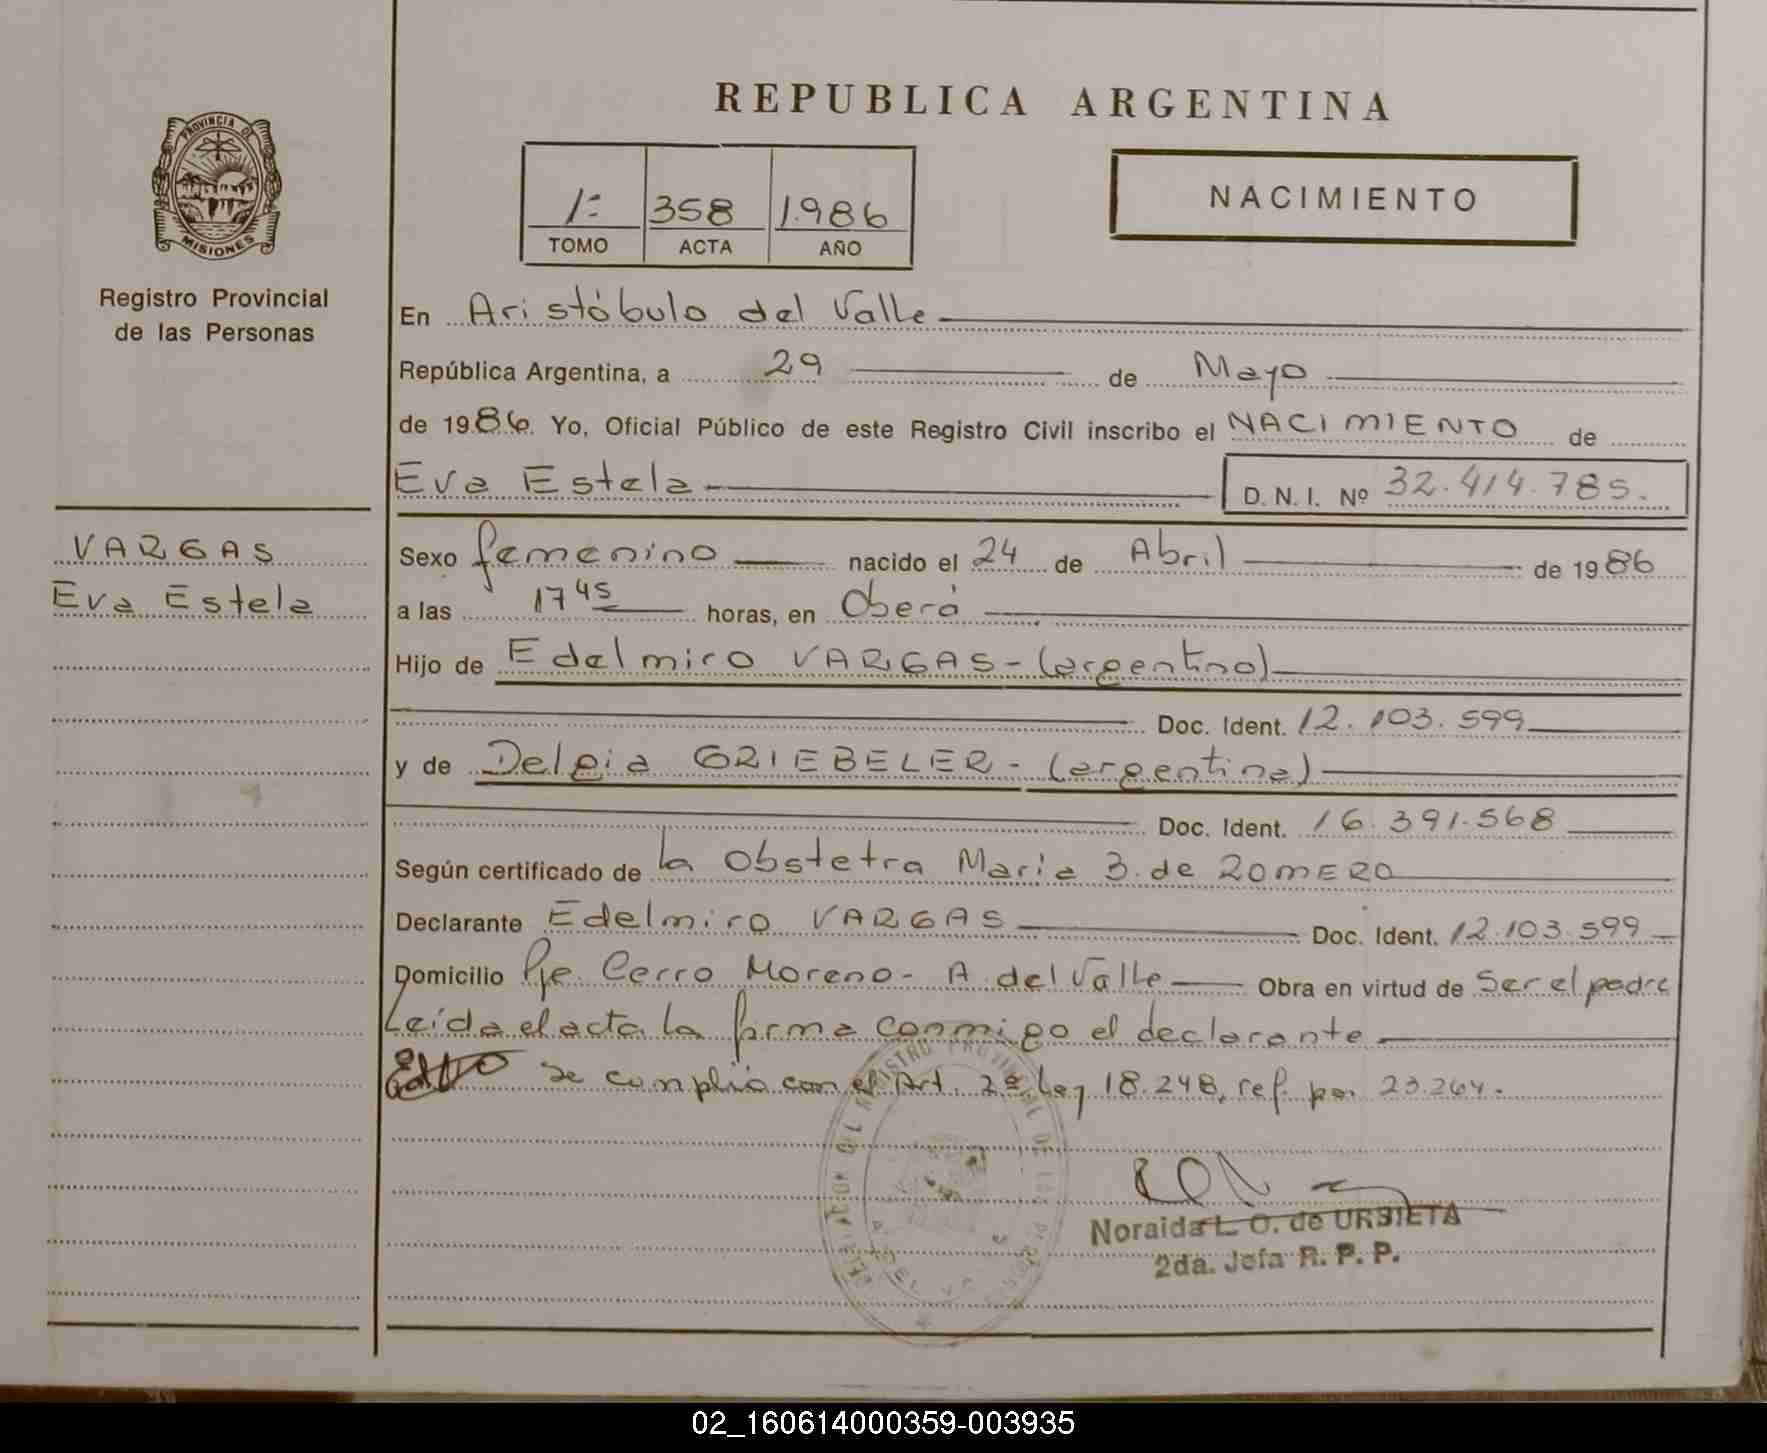 REPUBLICA ARGENTINA
PROVINCIA DE
MISIONES
Registro Provincial
de las Personas
1º 358 1.986
TOMO ACTA AÑO
NACIMIENTO
En Aristóbulo del Valle
República Argentina, a 29 de Mayo
de 1986. Yo, Oficial Público de este Registro Civil inscribo el NACIMIENTO de
Eva Estela D. N. I. Nº 32.414.785.
VARGAS
Eva Estela
Sexo femenino nacido el 24 de Abril de 1986
a las 17 45 horas, en Oberá
Hijo de Edelmiro VARGAS - (argentino)
Doc. Ident. 12.103.599
y de Delgia GRIEBELER - (argentina)
Doc. Ident. 16.391.568
Según certificado de la Obstetra Maria B. de ROMERO
Declarante Edelmiro VARGAS Doc. Ident. 12.103.599
Domicilio Pje. Cerro Moreno - A. del Valle Obra en virtud de Ser el padre
Leída el acta la firma conmigo el declarante
Se cumplió con el Art. 2º Ley 18.248, ref. por 23.264.
REGISTRO PROVINCIAL DE LAS PERSONAS
Noraida L. O. de URBIETA
2da. Jefa R. P. P.
02_160614000359-003935